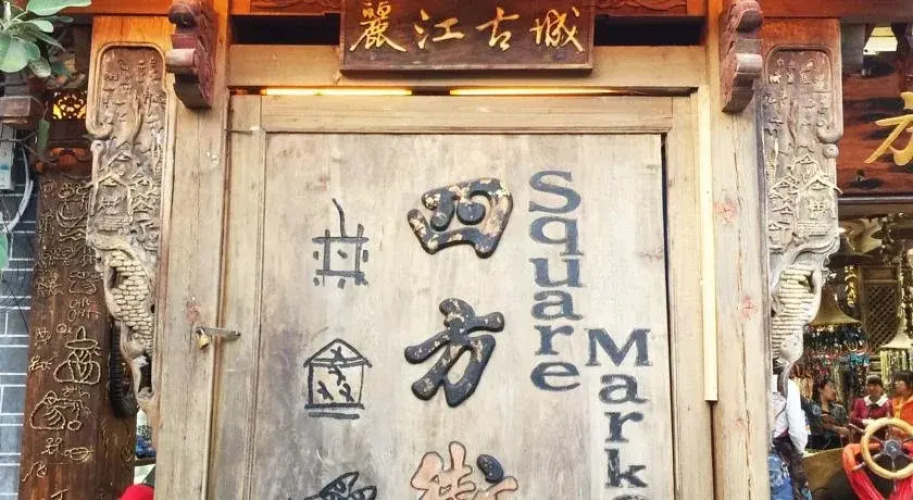 麗江古城
四方街
Square
Marke
方